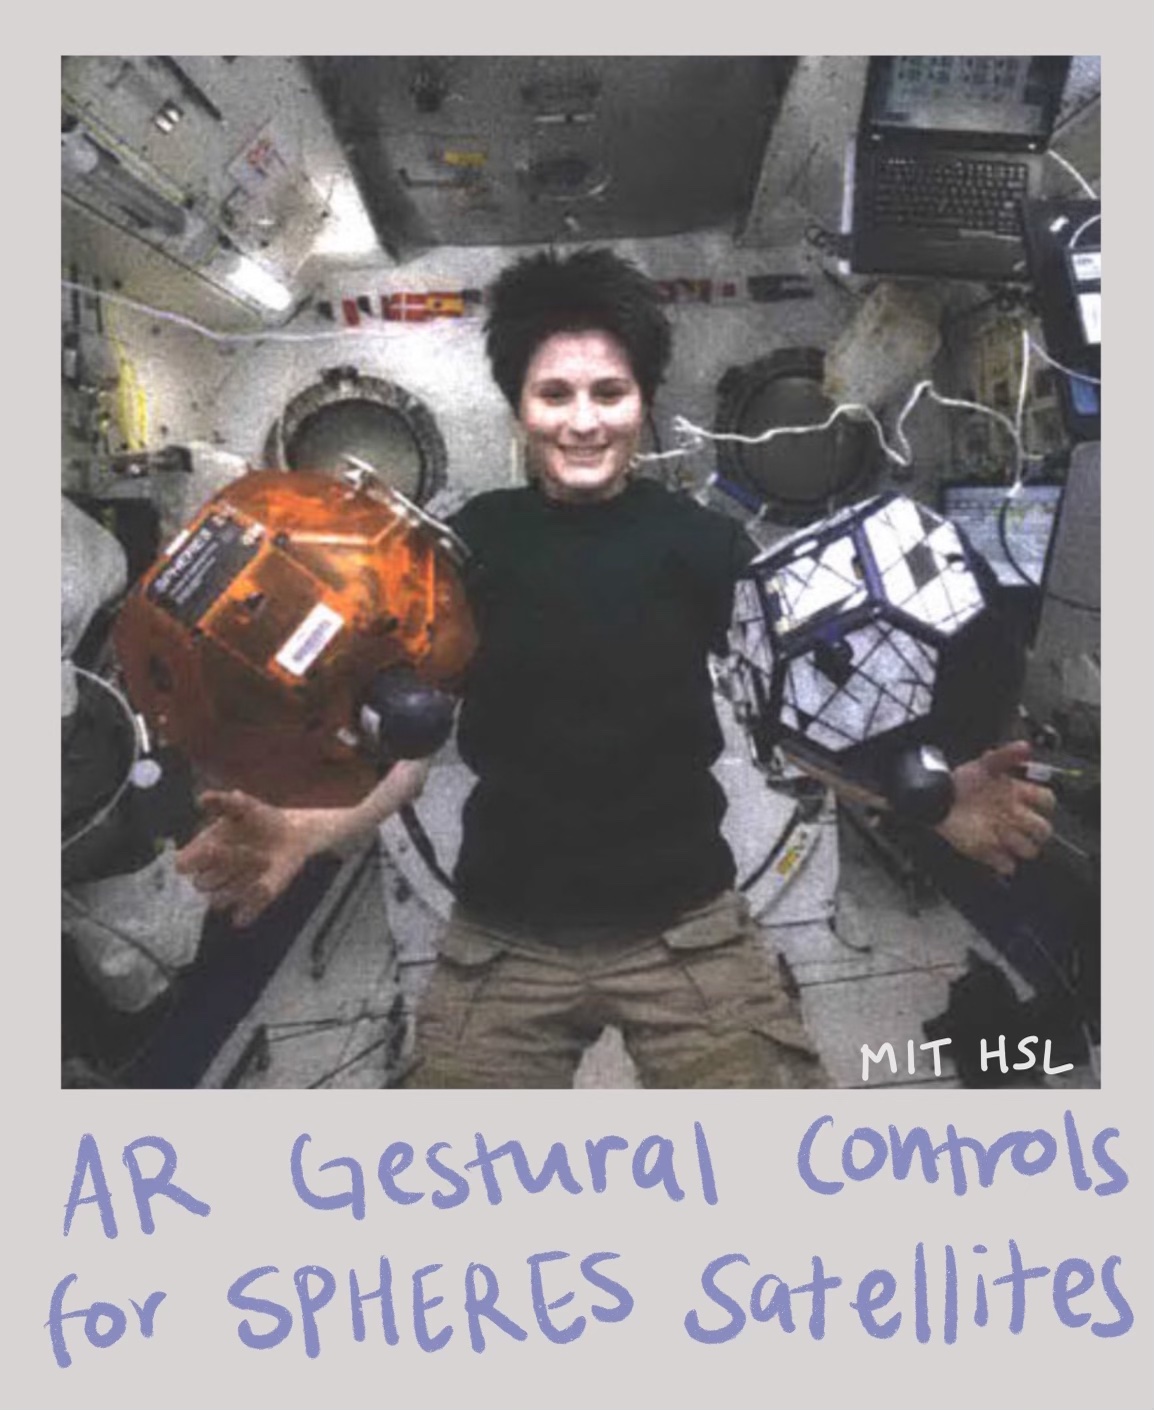 SPHERES
MIT HSL
AR Gestural Controls
for SPHERES Satellites